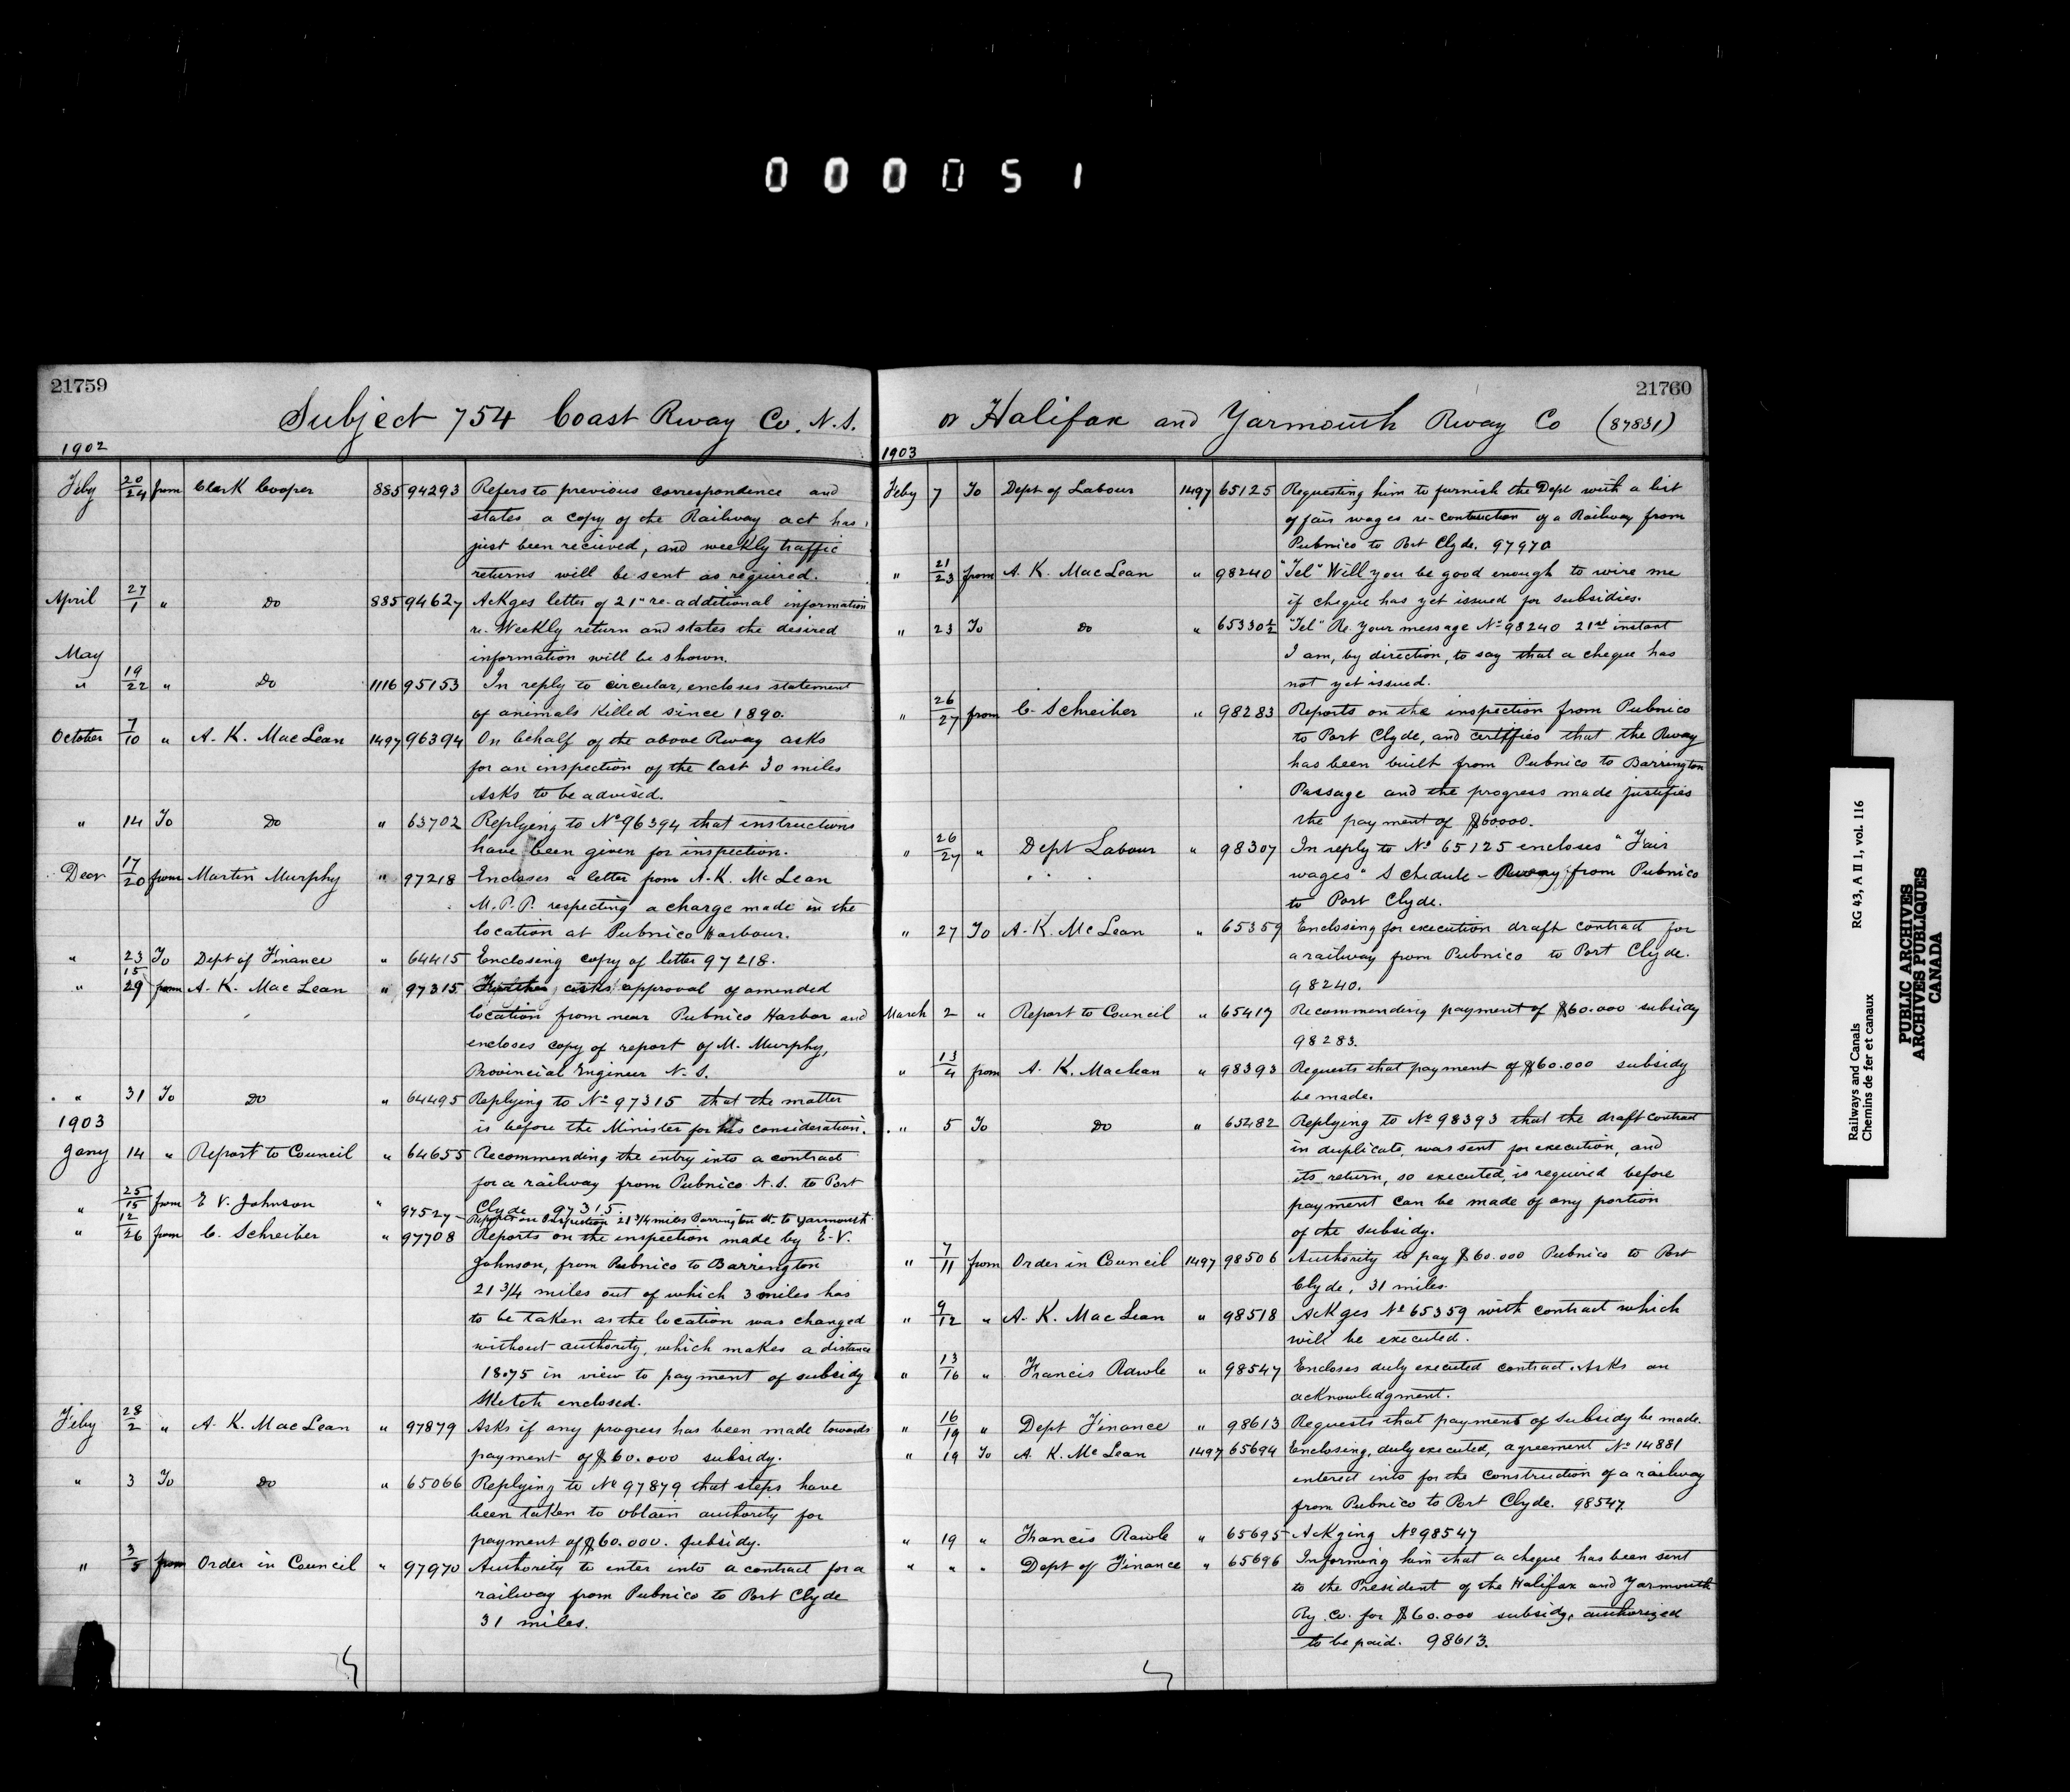 000051
21759
Subject 754 Coast Rway Co. N.S.
1902
Feby 20/24 from Clark Cooper 885 94293 Refers to previous correspondence and
states a copy of the Railway act has
just been recieved, and weekly traffic
returns will be sent as required.
April 27/1 " Do 885 94627 Ackges letter of 21" re-additional information
re- Weekly return and states the desired
information will be shown.
May
" 19/22 " Do 1116 95153 In reply to circular, encloses statement
of animals Killed since 1890.
October 7/10 " A. K. MacLean 1497 96394 On behalf of the above Rway asks
for an inspection of the last 30 miles
Asks to be advised.
" 14 To Do " 63702 Replying to No 96394 that instructions
have been given for inspection.
Decr 17/20 from Martin Murphy " 97218 Encloses a letter from A. K. McLean
M.P.P. respecting a charge made in the
location at Pubnico Harbour.
" 23 To Dept of Finance " 64415 Enclosing copy of letter 97218.
" 15/29 from A. K. MacLean " 97315 Further, asks approval of amended
location from near Pubnico Harbor and
encloses copy of report of M. Murphy,
Provincial Engineer N.S.
" 31 To Do " 64495 Replying to No 97315 that the matter
is before the Minister for his consideration.
1903
Jany 14 " Report to Council " 64655 Recommending the entry into a contract
for a railway from Pubnico N.S. to Port
Clyde 97315.
" 25/15 from E V. Johnson " 97527 Reports on Inspection 21 3/4 miles Barrington to Yarmouth.
" 12/26 from C. Schreiber " 97708 Reports on the inspection made by E. V.
Johnson, from Pubnico to Barrington
21 3/4 miles out of which 3 miles has
to be taken as the location was changed
without authority, which makes a distance
18.75 in view to payment of subsidy
Sketch enclosed.
Feby 28/2 " A. K. MacLean " 97879 Asks if any progress has been made towards
payment of $60.000 subsidy.
" 3 To Do " 65066 Replying to No 97879 that steps have
been taken to obtain authority for
payment of $60.000. subsidy.
" 3/5 from Order in Council " 97970 Authority to enter into a contract for a
railway from Pubnico to Port Clyde
31 miles.
21760
or Halifax and Yarmouth Rway Co (87831)
1903
Feby 7 To Dept of Labour 1497 65125 Requesting him to furnish the Dept with a list
of fair wages re-contruction of a Railway from
Pubnico to Port Clyde. 97970
" 21/23 from A. K. MacLean " 98240 "Tel" Will you be good enough to wire me
if cheque has yet issued for subsidies.
" 23 To Do " 65330 1/2 "Tel" Re. your message No 98240 21st instant
I am, by direction, to say that a cheque has
not yet issued.
" 26/27 from C. Schreiber " 98283 Reports on the inspection from Pubnico
to Port Clyde, and certifies that the Rway
has been built from Pubnico to Barrington
Passage and the progress made justifies
the payment of $60000.
" 26/27 " Dept Labour " 98307 In reply to No 65125 encloses "Fair
wages" Schedule - Rway from Pubnico
to Port Clyde.
" 27 To A. K. McLean " 65359 Enclosing for execution draft contract for
a railway from Pubnico to Port Clyde.
98240.
March 2 " Report to Council " 65417 Recommending payment of $60.000 subsidy
98283.
" 13/4 from A. K. Maclean " 98393 Requests that payment of $60.000 subsidy
be made.
" 5 To Do " 65482 Replying to No 98393 that the draft contract
in duplicate, was sent for execution, and
its return, so executed, is required before
payment can be made of any portion
of the subsidy.
" 7/11 from Order in Council 1497 98506 Authority to pay $60.000 Pubnico to Port
Clyde, 31 miles.
" 9/12 " A. K. MacLean " 98518 Ackges No 65359 with contract which
will be executed.
" 13/16 " Francis Rawle " 98547 Encloses duly executed contract. Asks an
acknowledgment.
" 16/19 " Dept Finance " 98613 Requests that payment of subsidy be made.
" 19 To A. K. McLean 1497 65694 Enclosing, duly executed, agreement No 14881
entered into for the construction of a railway
from Pubnico to Port Clyde. 98547.
" 19 " Francis Rawle " 65695 Ackging No 98547
" " " Dept of Finance " 65696 Informing him that a cheque has been sent
to the President of the Halifax and Yarmouth
Ry. Co. for $60.000 subsidy, authorized
to be paid. 98613.
Railways and Canals
Chemins de fer et canaux
RG 43, A II 1, vol. 116
PUBLIC ARCHIVES
ARCHIVES PUBLIQUES
CANADA